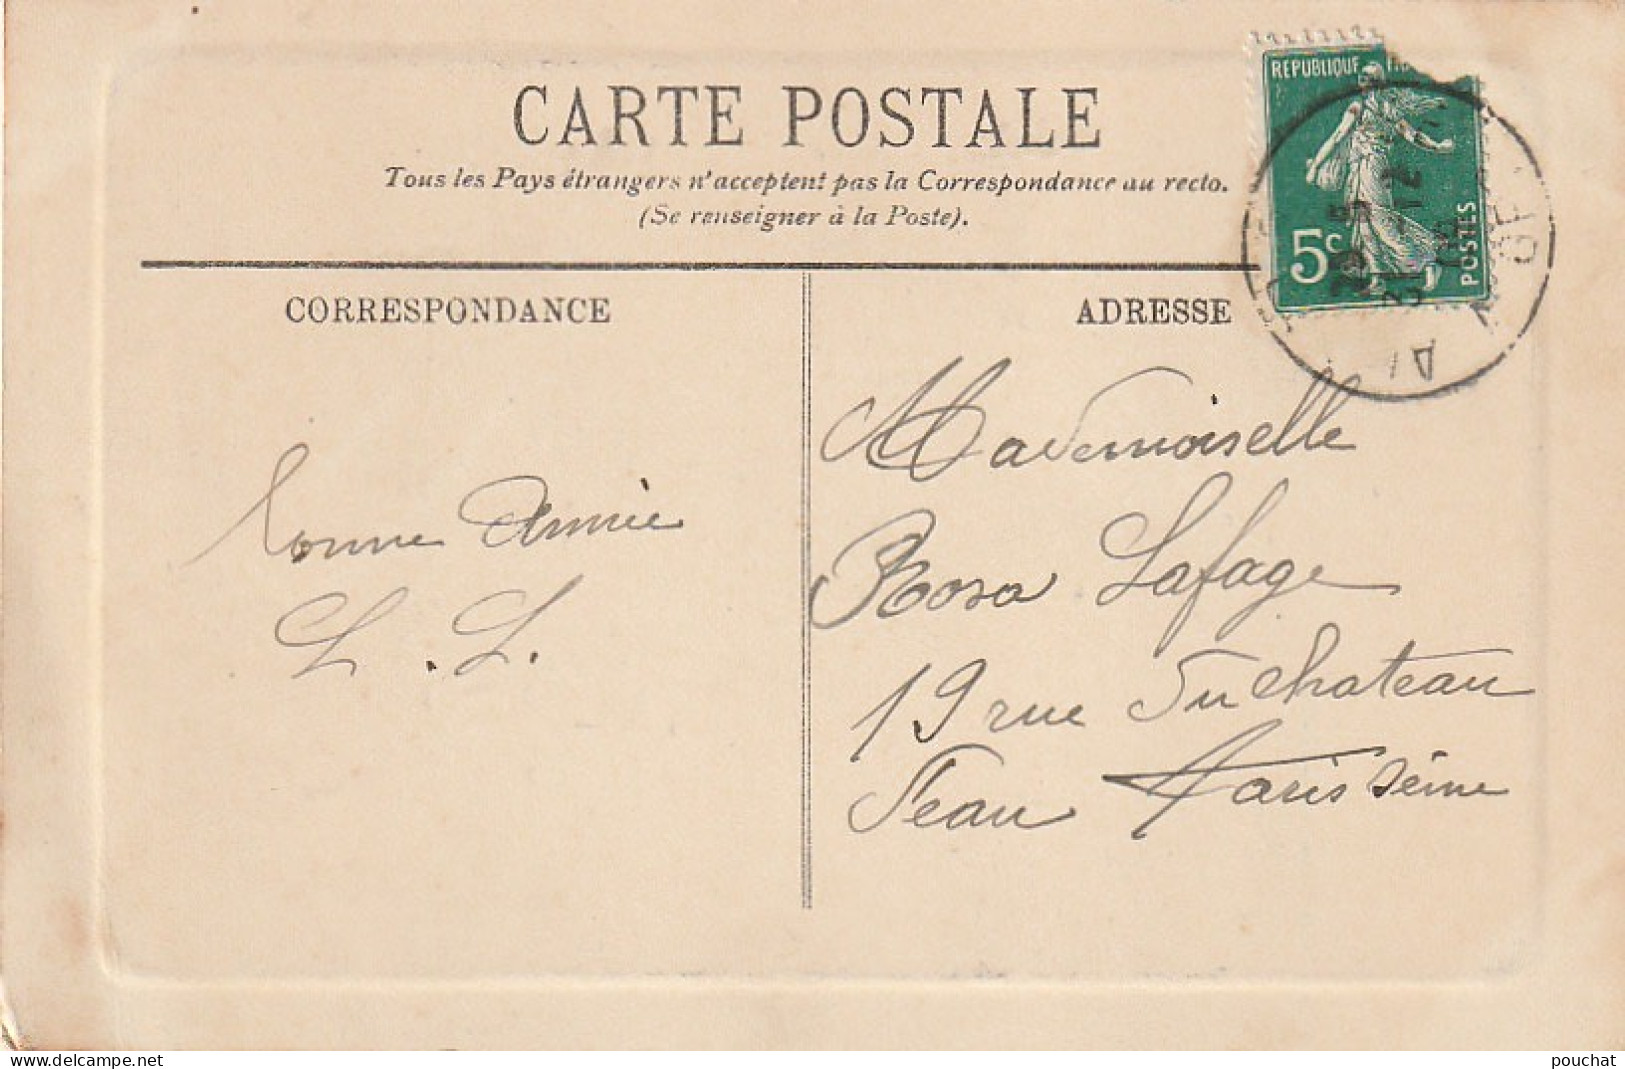 CARTE POSTALE
Tous les Pays étrangers n'acceptent pas la Correspondance au recto.
(Se renseigner à la Poste).
CORRESPONDANCE
ADRESSE
REPUBLIQUE
5c
POSTES
bonne Année
L. L.
Mademoiselle
Rosa Lafage
19 rue du chateau
d'eau Paris Seine
delcampe.net
pouchat